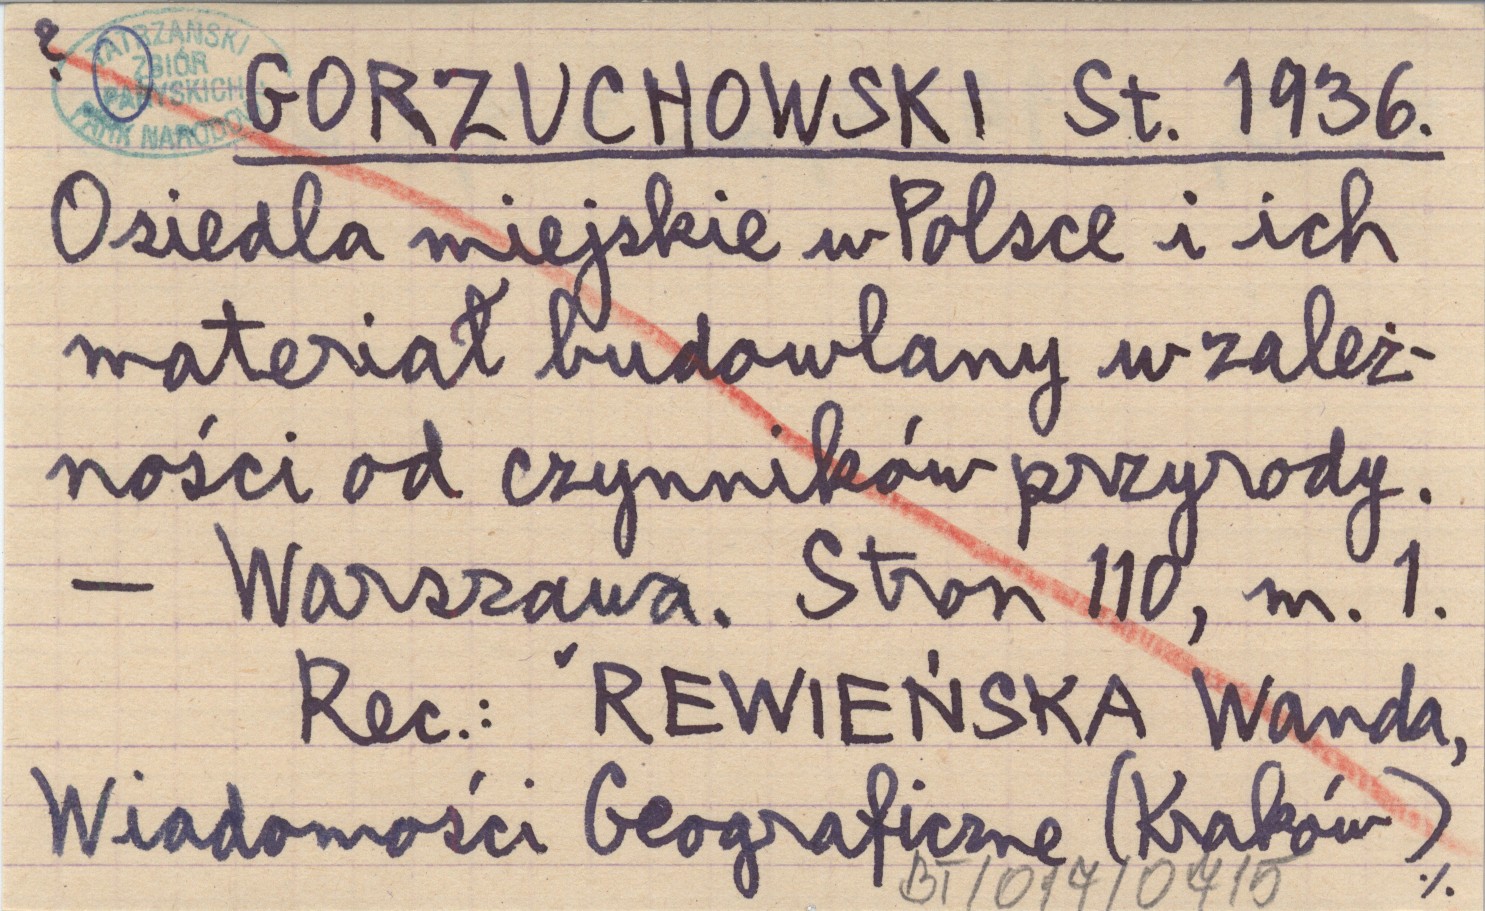 ?
TATRZAŃSKI
ZBIÓR
PARYSKICH
PARK NARODOWY
GORZUCHOWSKI St. 1936.
Osiedla miejskie w Polsce i ich
materiał budowlany w zależ-
ności od czynników przyrody.
— Warszawa. Stron 110, m. 1.
Rec.: REWIEŃSKA Wanda,
Wiadomości Geograficzne (Kraków)
BT/017/0715
./.